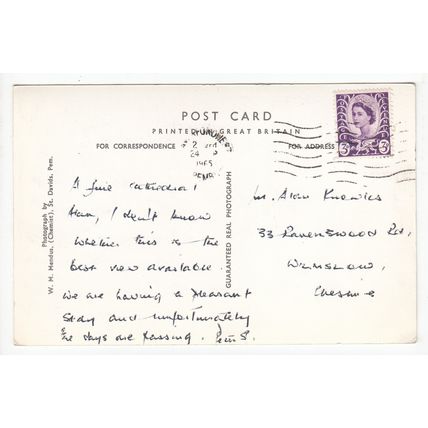 POST CARD
PRINTED IN GREAT BRITAIN
FOR CORRESPONDENCE
FOR ADDRESS
2
24
1965
PEMB
3D 3D
Photograph by
W. M. Mendus, (Chemist), St. Davids, Pem.
GUARANTEED REAL PHOTOGRAPH
A fine cathedral
Alan, I don't know
whether this is the
best view available.
We are having a pleasant
stay and unfortunately
the days are passing.
Mr. Alan Knowles
33 Ravenswood Rd,
WILMSLOW,
Cheshire